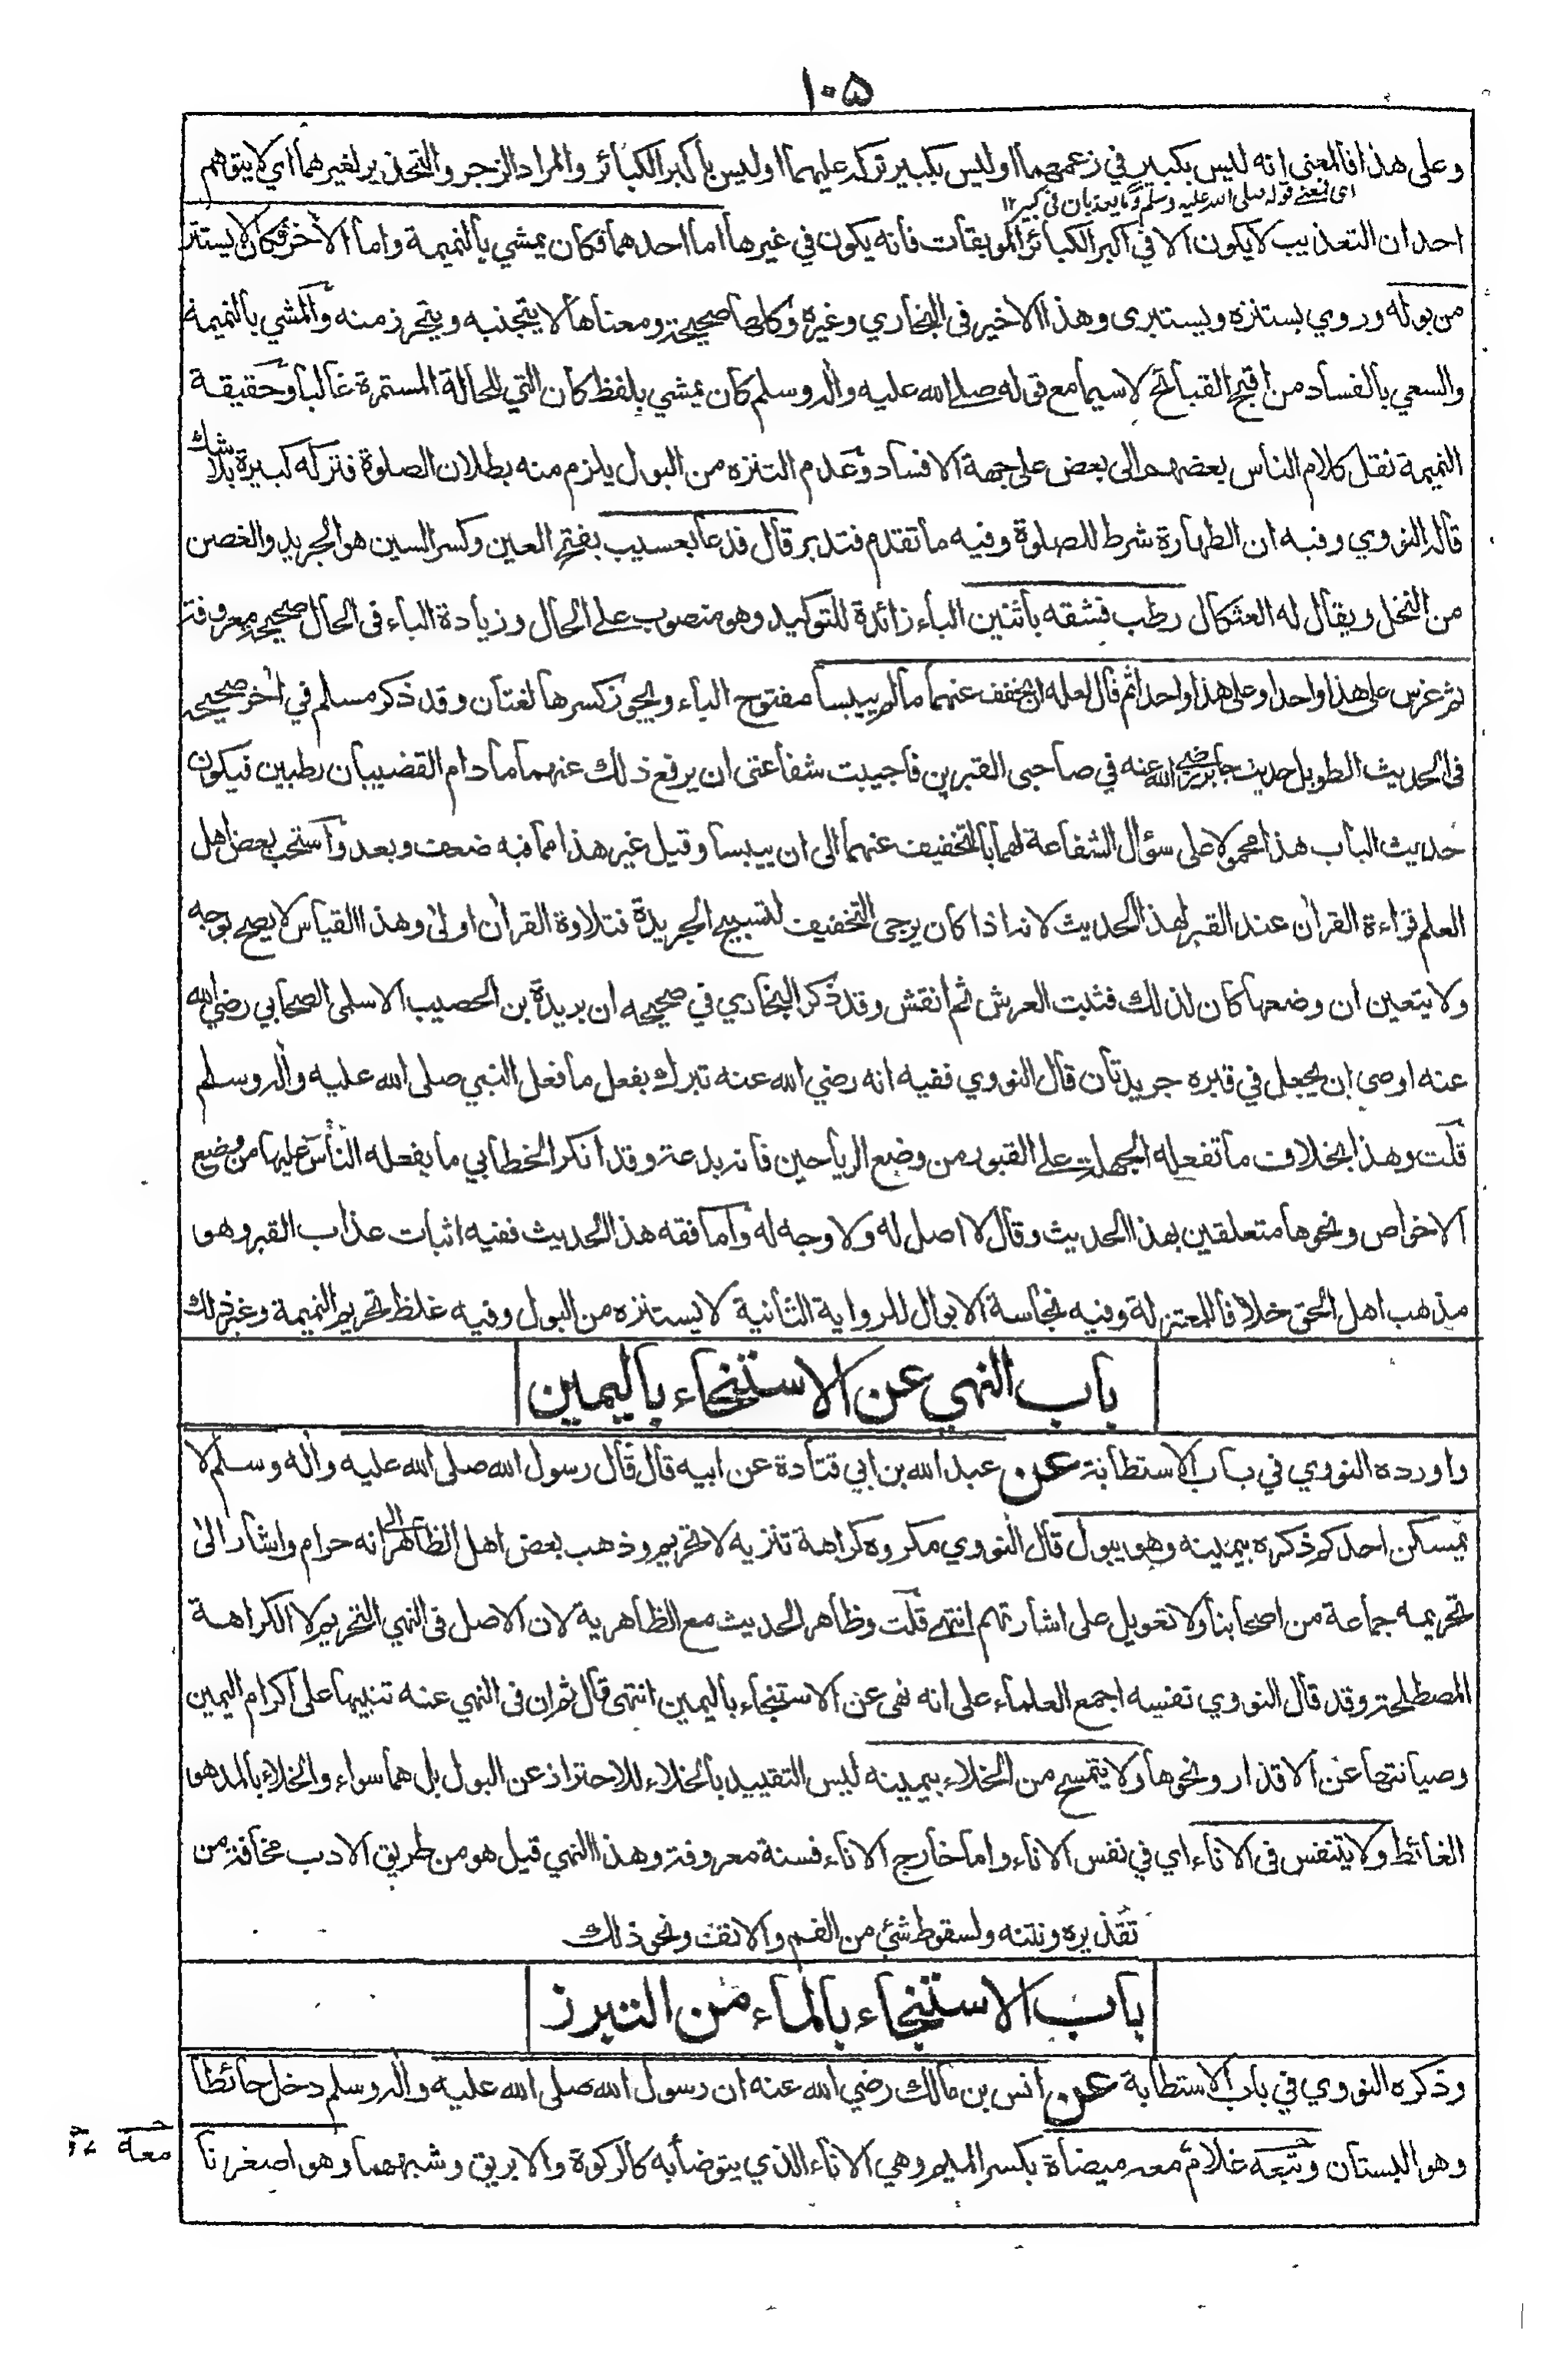 ١٠٥
وعلى هذا فالمعنى انه ليس بكبير في زعمهما اوليس بكبير تركه عليهما اوليس باكبر الكبائر والمراد الزجر والتحذير لغيرهما اي لا يتوهم
اى لمعنى قوله صلى الله عليه وسلم وما يعذبان فى كبير ١٢
احد ان التعذيب لا يكون الا في اكبر الكبائر الموبقات فانه يكون في غيرها اما احدهما فكان يمشي بالنميمة واما الأخر فكان لا يستتر
من بوله وروي يستنزه ويستبرى وهذا الاخير فى البخاري وغيره وكلها صحيحة ومعناها لا يتجنبه ويتحرز منه والمشي بالنميمة
والسعي بالفساد من اقبح القبائح لا سيما مع قوله صلى الله عليه واٰله وسلم كان يمشي بلفظ كان التي للحالة المستمرة غالبا وحقيقة
النميمة نقل كلام الناس بعضهم الى بعض على جهة الافساد وعدم التنزه من البول يلزم منه بطلان الصلوة فتركه كبيرة بلا شك
قاله النووي وفيه ان الطهارة شرط للصلوة وفيه ما تقدم فتدبر قال فدعا بعسيب بفتح العين وكسر السين هو الجريد والغصن
من النخل ويقال له العثكال رطب فشقه باثنين الباء زائدة للتوكيد وهو منصوب على الحال وزيادة الباء فى الحال صحيحة معروفة
ثم غرس على هذا واحدا وعلى هذا واحدا ثم قال لعله ان يخفف عنهما مالم ييبسا مفتوح الباء ويجوز كسرها لغتان وقد ذكر مسلم في اٰخر صحيحه
فى الحديث الطويل حديث جابر رضي الله عنه في صاحبى القبرين فاجيبت شفاعتى ان يرفع ذلك عنهما ما دام القضيبان رطبين فيكون
حديث الباب هذا محمولا على سؤال الشفاعة لهما بالتخفيف عنهما الى ان ييبسا وقيل غير هذا مما فيه ضعف وبعد واستحب بعض اهل
العلم قراءة القراٰن عند القبر لهذا الحديث لانه اذا كان يرجى التخفيف لتسبيح الجريدة فتلاوة القراٰن اولىٰ وهذا القياس لا يصح بوجه
ولا يتعين ان وضعها كان لذلك فثبت العرش ثم انقش وقد ذكر البخاري في صحيحه ان بريدة بن الحصيب الاسلمى الصحابي رضي الله
عنه اوصى ان يجعل في قبره جريدتان قال النووي ففيه انه رضي الله عنه تبرك بفعل ما فعل النبي صلى الله عليه واٰله وسلم
قلت وهذا بخلاف ما تفعله الجهلة على القبور من وضع الرياحين فانه بدعة وقد انكر الخطابي ما يفعله الناس عليها من وضع
الاخواص ونحوها متعلقين بهذا الحديث وقال لا اصل له ولا وجه له واما فقه هذا الحديث ففيه اثبات عذاب القبر وهو
مذهب اهل الحق خلافا للمعتزلة وفيه نجاسة الابوال للرواية الثانية لا يستنزه من البول وفيه غلظ تحريم النميمة وغير ذلك
باب النهي عن الاستنجاء باليمين
واورده النووي في باب الاستطابة عن عبد الله بن ابي قتادة عن ابيه قال قال رسول الله صلى الله عليه واٰله وسلم لا
يمسكن احدكم ذكره بيمينه وهو يبول قال النووي مكروه كراهة تنزيه لا تحريم وذهب بعض اهل الظاهر الى انه حرام واشار الىٰ
تحريمه جماعة من اصحابنا ولا تعويل على اشارتهم انتهى قلت وظاهر الحديث مع الظاهرية لان الاصل فى النهي التحريم لا الكراهة
المصطلحة وقد قال النووي نفسه اجمع العلماء على انه نهى عن الاستنجاء باليمين انتهى قال ثم ان فى النهي عنه تنبيها على اكرام اليمين
وصيانتها عن الاقذار ونحوها ولا يتمسح من الخلاء بيمينه ليس التقييد بالخلاء للاحتراز عن البول بل هما سواء والخلاء بالمد هو
الغائط ولا يتنفس فى الاناء اي في نفس الاناء واما خارج الاناء فسنة معروفة وهذا النهي قيل هو من طريق الادب مخافة من
تقذيره ونتنه ولسقوط شئ من الفم والانف ونحو ذلك
باب الاستنجاء بالماء من التبرز
وذكره النووي في باب الاستطابة عن انس بن مالك رضي الله عنه ان رسول الله صلى الله عليه واٰله وسلم دخل حائطا
وهو البستان وتبعه غلام معه ميضأة بكسر الميم وهي الاناء الذي يتوضأ به كالركوة والابريق وشبههما وهو اصغرنا
معه